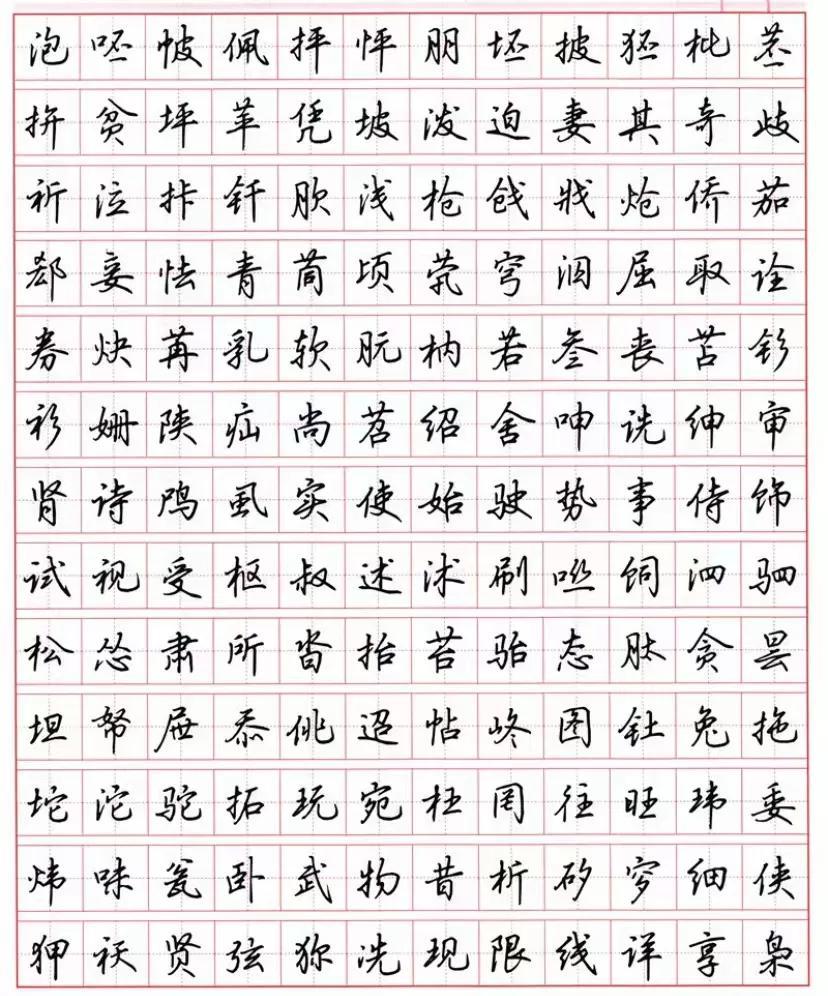 泡呸帔佩抨怦朋坯披狉枇苤
拚贫坪苹凭坡泼迫妻其奇歧
祈泣拤钎肷浅枪戗戕炝侨茄
郄妾怯青苘顷茕穹泅屈取诠
券炔苒乳软朊枘若叁丧苫钐
衫姗陕疝尚苕绍舍呻诜绅审
肾诗鸤虱实使始驶势事侍饰
试视受枢叔述沭刷咝饲泗驷
松怂肃所沓抬苔骀态肽贪昙
坦帑屉忝佻迢帖咚图钍兔拖
坨沱驼拓玩宛枉罔往旺玮委
炜味瓮卧武物昔析矽穸细侠
狎祆贤弦狝冼现限线详享枭